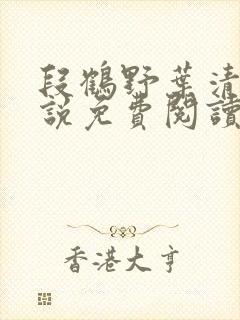 段鶴野葉清
說免費閱讀
香港大亨